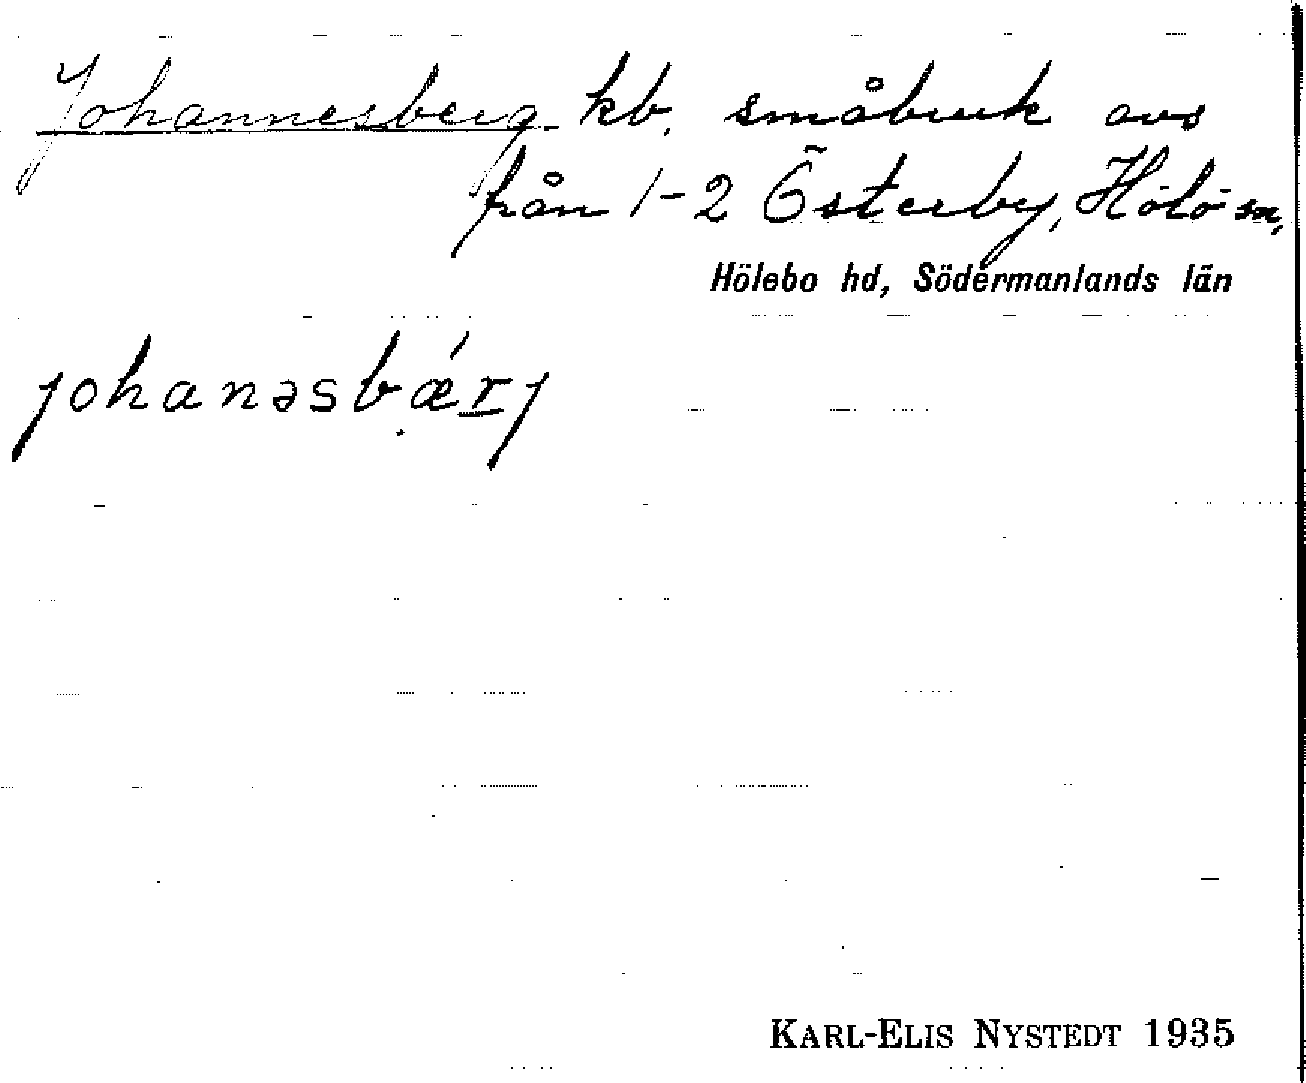 Johannesberg kb. småbruk avs
från 1-2 Österby, Hölö sn,
Hölebo hd, Södermanlands län
johanəsbǽrj
KARL-ELIS NYSTEDT 1935